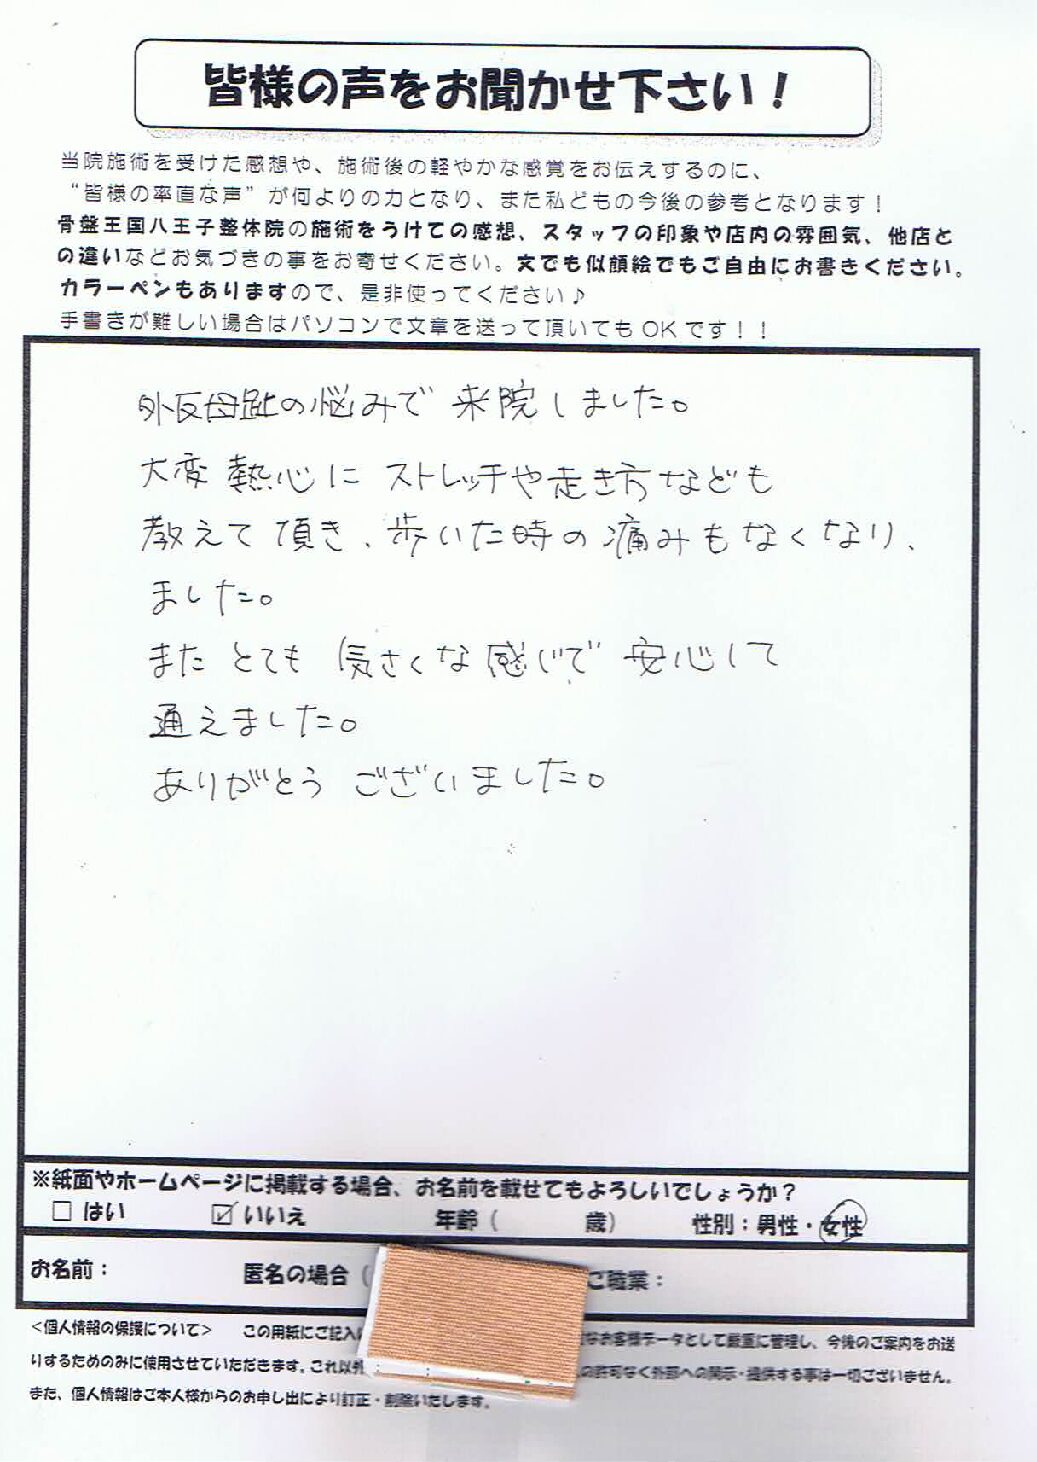 皆様の声をお聞かせ下さい！
当院施術を受けた感想や、施術後の軽やかな感覚をお伝えするのに、
“皆様の率直な声”が何よりの力となり、また私どもの今後の参考となります！
骨盤王国八王子整体院の施術をうけての感想、スタッフの印象や店内の雰囲気、他店と
の違いなどお気づきの事をお寄せください。文でも似顔絵でもご自由にお書きください。
カラーペンもありますので、是非使ってください♪
手書きが難しい場合はパソコンで文章を送って頂いてもOKです！！
外反母趾の悩みで 来院しました。
大変 熱心に ストレッチや走き方なども
教えて頂き、歩いた時の痛みもなくなり、
ました。
また とても 気さくな感じで 安心して
通えました。
ありがとう ございました。
※紙面やホームページに掲載する場合、お名前を載せてもよろしいでしょうか？
□ はい ☑ いいえ 年齢（ 歳） 性別：男性・女性
お名前： 匿名の場合（ ご職業：
＜個人情報の保護について＞ この用紙にご記入 なお客様データとして厳重に管理し、今後のご案内をお送
りするためのみに使用させていただきます。これ以外 の許可なく外部への開示・提供する事は一切ございません。
また、個人情報はご本人様からのお申し出により訂正・削除いたします。